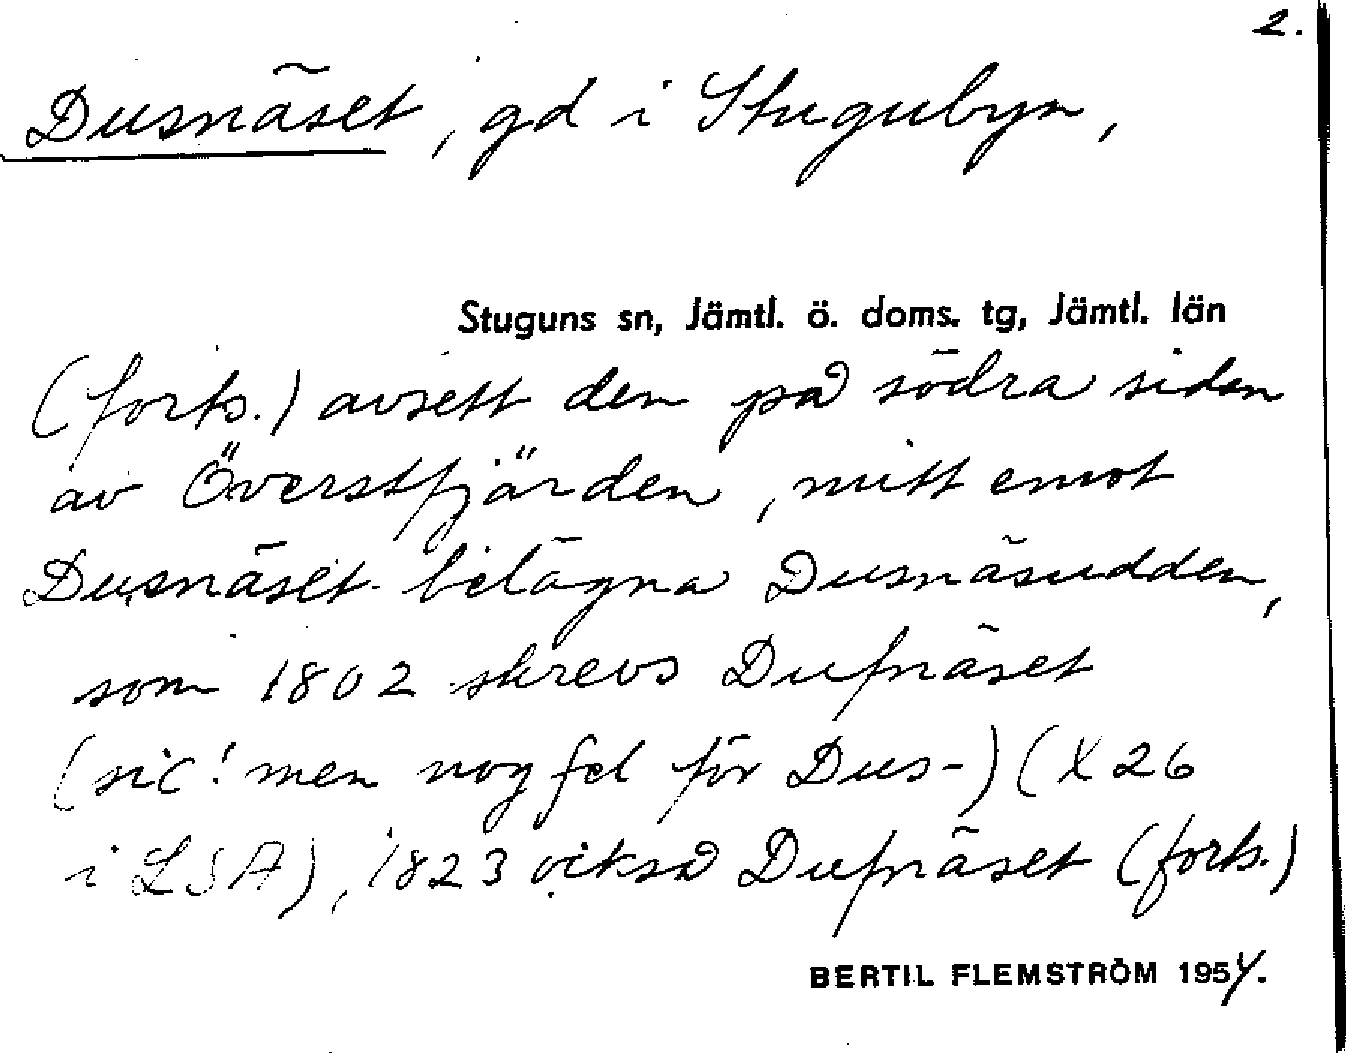 2.
Dusnäset, gd i Stugubyn,
Stuguns sn, Jämtl. ö. doms. tg, Jämtl. län
(forts.) avsett den på södra sidan
av Överstfjärden, mitt emot
Dusnäset belägna Dusnäsudden,
som 1802 skrevs Dufnäset
(sic! men nog fel för Dus-) (X 26
i LSA), 1823 också Dufnäset (forts.)
BERTIL FLEMSTRÖM 1954.